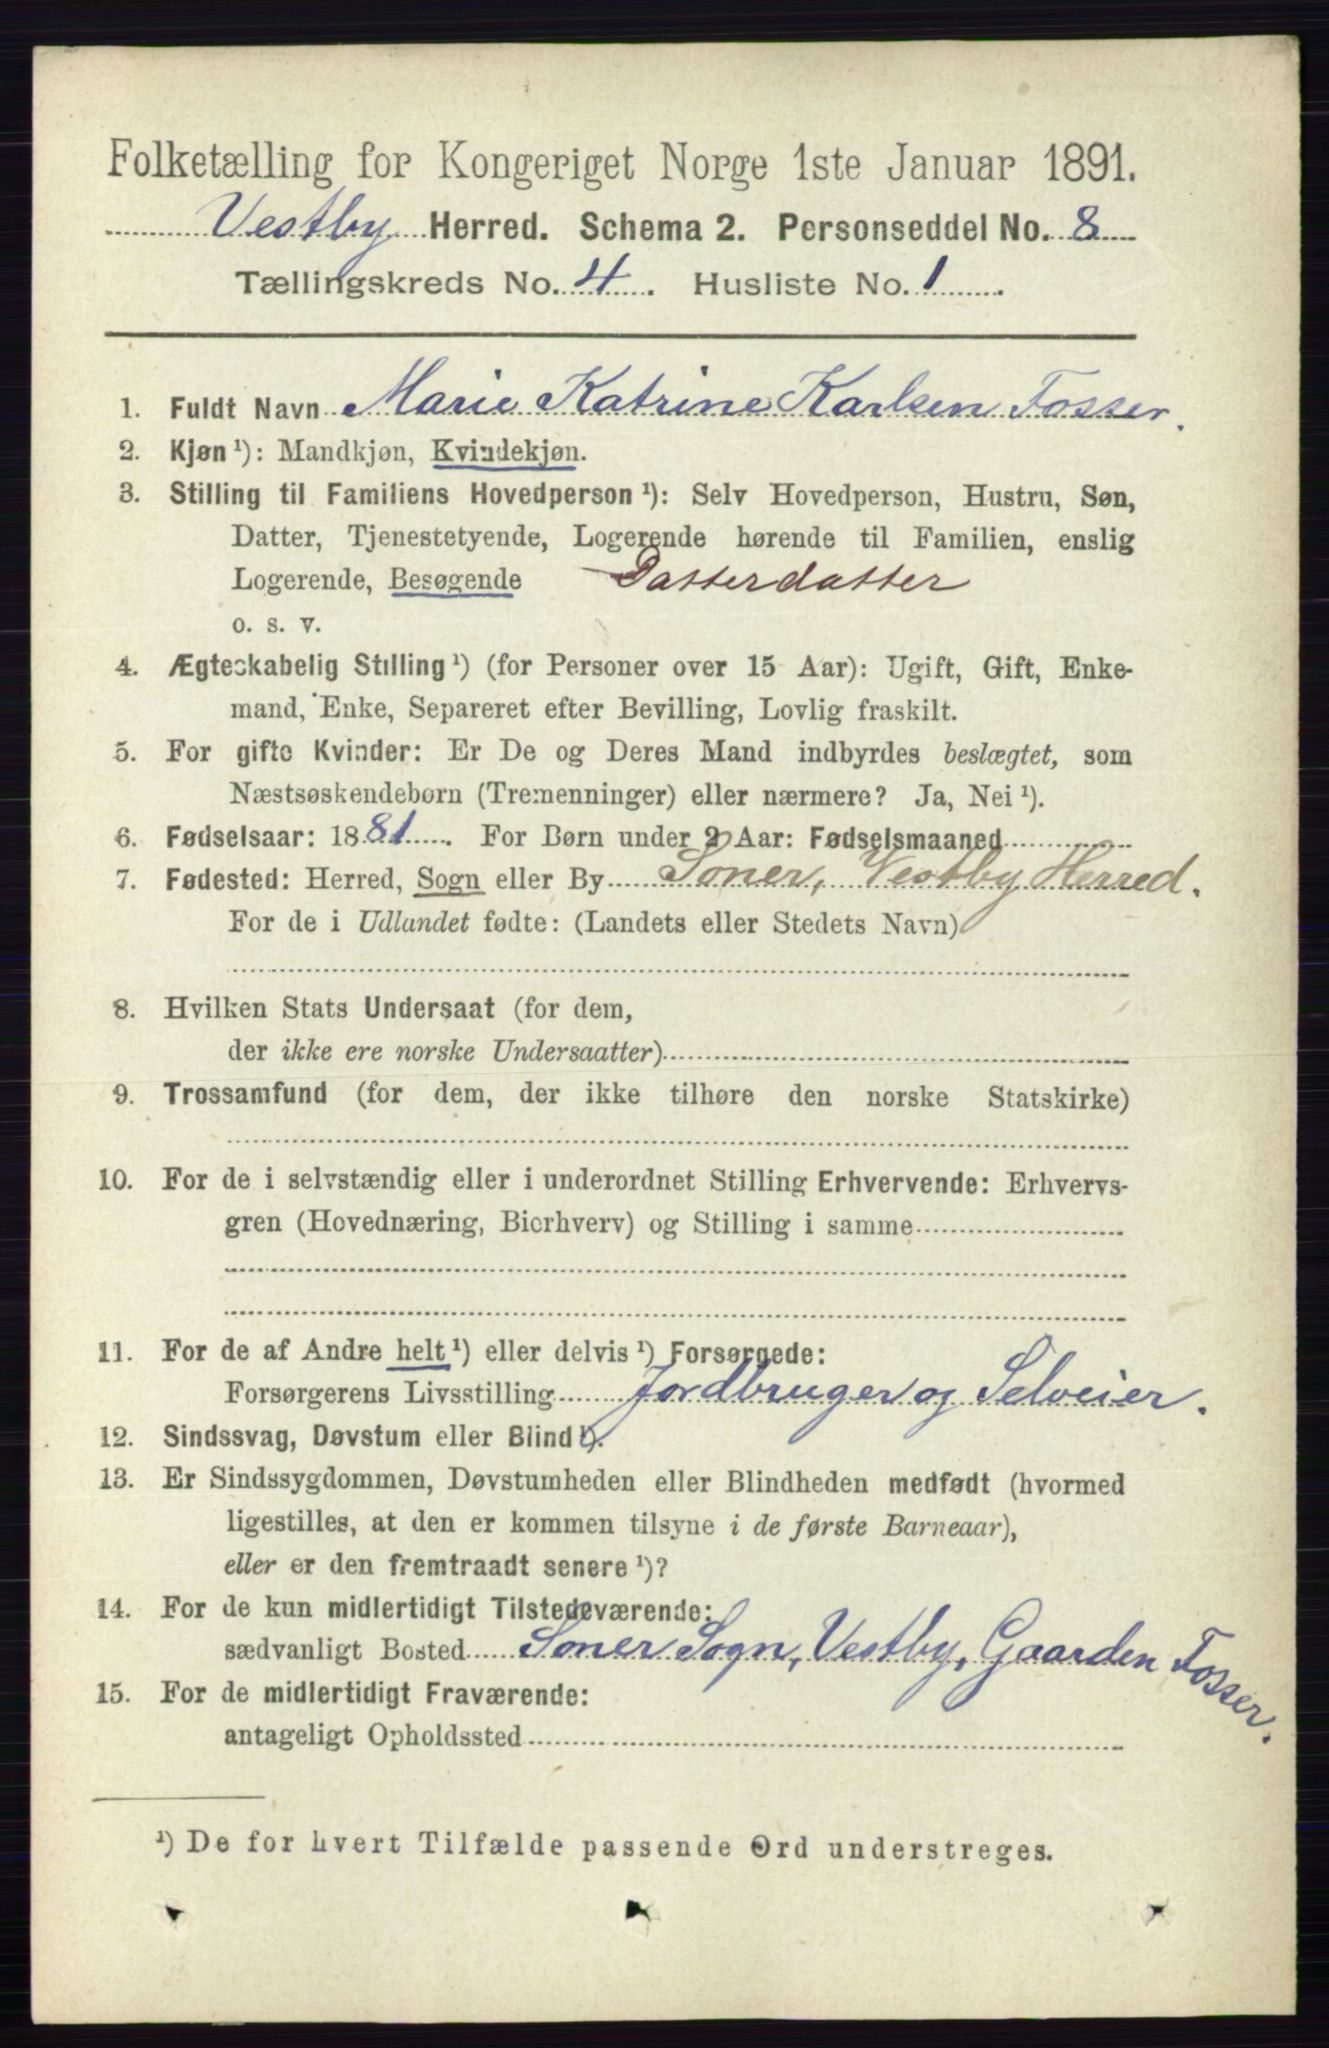 Folketælling for Kongeriget Norge 1ste Januar 1891.
Vestby Herred. Schema 2. Personseddel No. 8
Tællingskreds No. 4. Husliste No. 1.
1. Fuldt Navn Marie Katrine Karlsen Fosser.
2. Kjøn ¹): Mandkjøn, Kvindekjøn.
3. Stilling til Familiens Hovedperson ¹): Selv Hovedperson, Hustru, Søn,
Datter, Tjenestetyende, Logerende hørende til Familien, enslig
Logerende, Besøgende Datterdatter
o. s. v.
4. Ægteskabelig Stilling ¹) (for Personer over 15 Aar): Ugift, Gift, Enke-
mand, Enke, Separeret efter Bevilling, Lovlig fraskilt.
5. For gifte Kvinder: Er De og Deres Mand indbyrdes beslægtet, som
Næstsøskendebørn (Tremenninger) eller nærmere? Ja, Nei ¹).
6. Fødselsaar: 1881. For Børn under 2 Aar: Fødselsmaaned
7. Fødested: Herred, Sogn eller By Soner, Vestby Herred.
For de i Udlandet fødte: (Landets eller Stedets Navn)
8. Hvilken Stats Undersaat (for dem,
der ikke ere norske Undersaatter)
9. Trossamfund (for dem, der ikke tilhøre den norske Statskirke)
10. For de i selvstændig eller i underordnet Stilling Erhvervende: Erhvervs-
gren (Hovednæring, Bierhverv) og Stilling i samme
11. For de af Andre helt ¹) eller delvis ¹) Forsørgede:
Forsørgerens Livsstilling Jordbruger og Selveier.
12. Sindssvag, Døvstum eller Blind ¹).
13. Er Sindssygdommen, Døvstumheden eller Blindheden medfødt (hvormed
ligestilles, at den er kommen tilsyne i de første Barneaar),
eller er den fremtraadt senere ¹)?
14. For de kun midlertidigt Tilstedeværende:
sædvanligt Bosted Soner Sogn, Vestby, Gaarden Fosser.
15. For de midlertidigt Fraværende:
antageligt Opholdssted
¹) De for hvert Tilfælde passende Ord understreges.